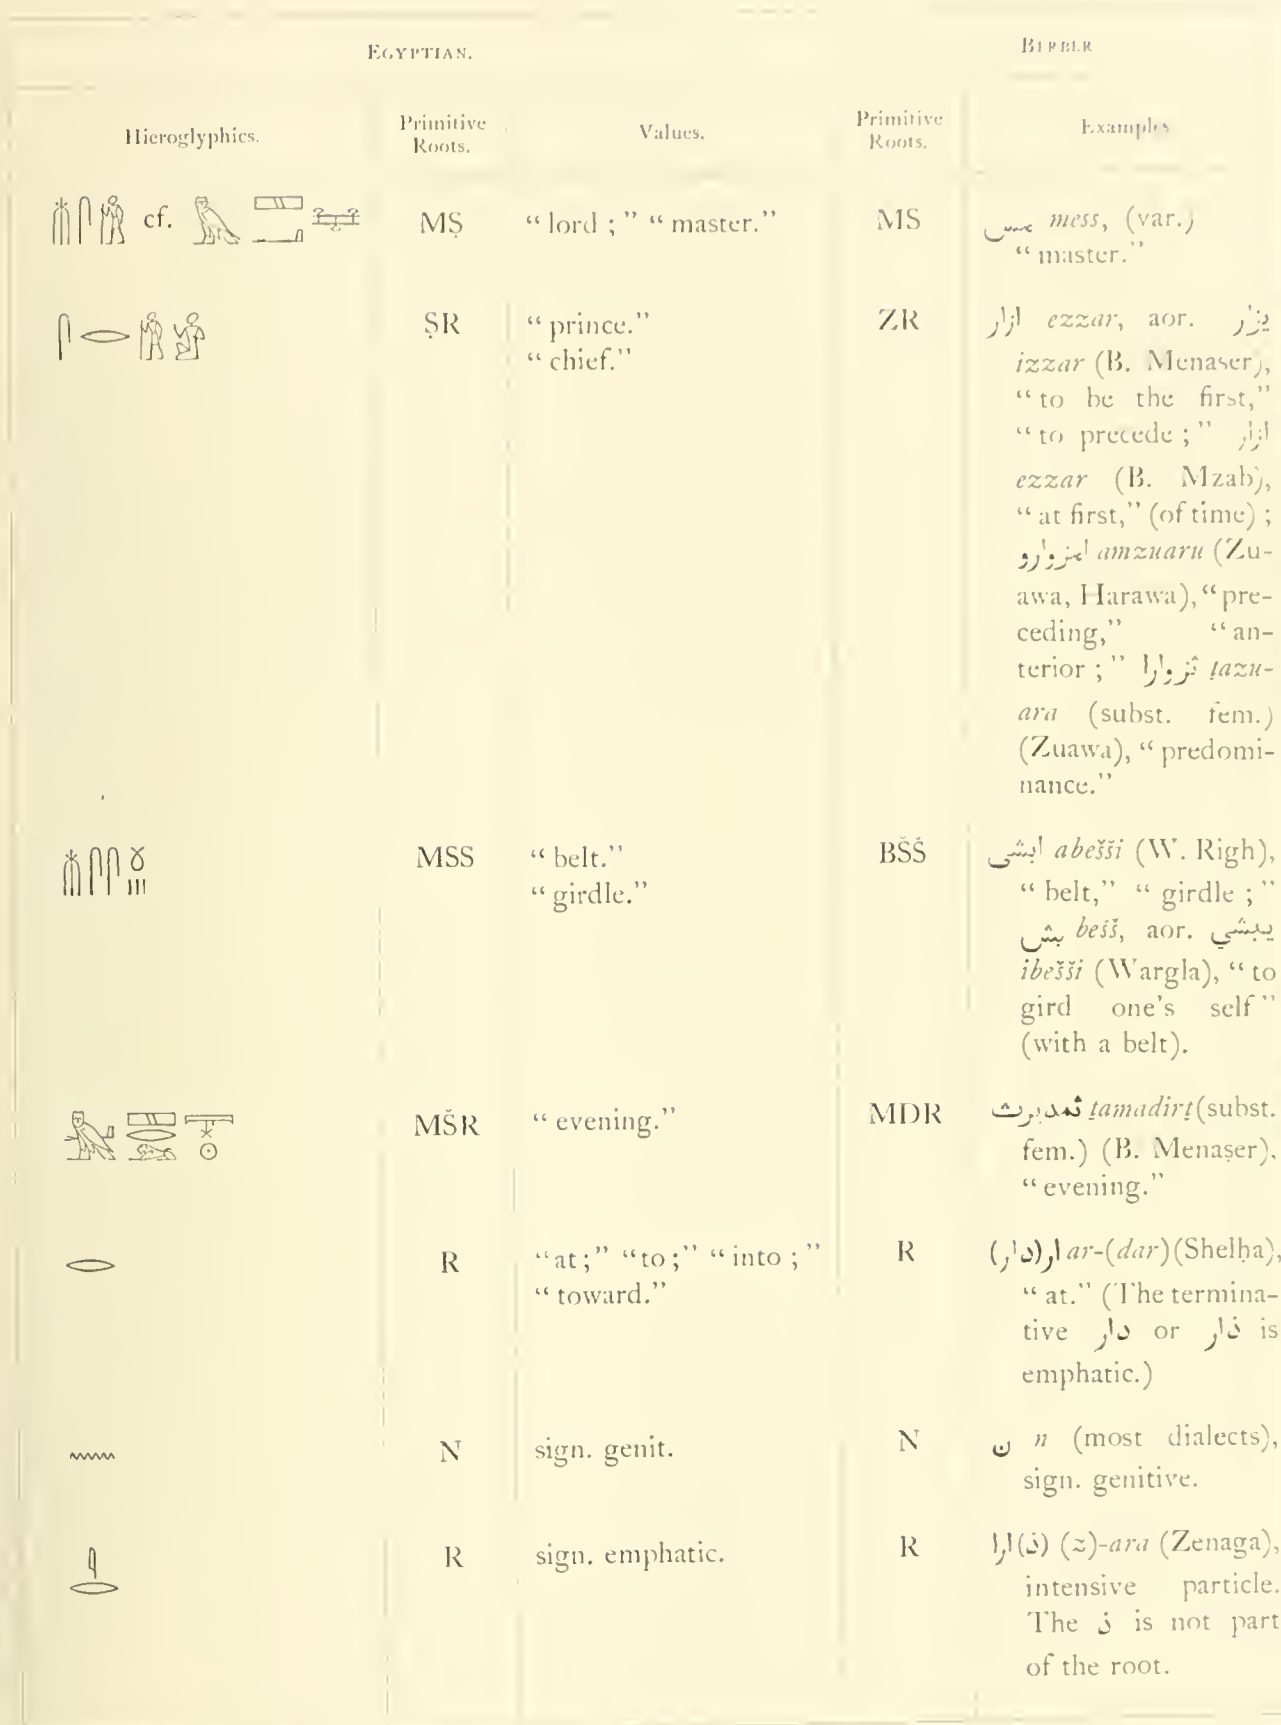 EGYPTIAN. BERBER
Hieroglyphics. Primitive Roots. Values. Primitive Roots. Examples
cf. MṢ “lord ;” “master.” MS مس mess, (var.)
“master.”
ṢR “prince.” ZR ازار ezzar, aor. يزار
“chief.” izzar (B. Menaser),
“to be the first,”
“to precede ;” ازار
ezzar (B. Mzab),
“at first,” (of time) ;
امزوارو amzuaru (Zu-
awa, Harawa), “pre-
ceding,” “an-
terior ;” ثزوارا ṭazu-
ara (subst. fem.)
(Zuawa), “predomi-
nance.”
MSS “belt.” BŠŠ ابشى abešši (W. Righ),
“girdle.” “belt,” “girdle ;”
بش bešš, aor. يبشي
ibešši (Wargla), “to
gird one's self”
(with a belt).
MŠR “evening.” MDR ثمديرث ṭamadirṭ (subst.
fem.) (B. Menaṣer),
“evening.”
R “at ;” “to ;” “into ;” R ار(دار) ar-(dar) (Shelḥa),
“toward.” “at.” (The termina-
tive دار or ذار is
emphatic.)
N sign. genit. N ن n (most dialects),
sign. genitive.
R sign. emphatic. R (ذ)ارا (z)-ara (Zenaga),
intensive particle.
The ذ is not part
of the root.